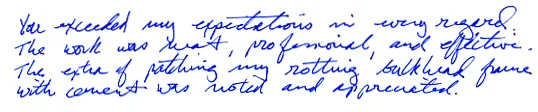 You exceeded my expectations in every regard.
The work was neat, professional, and effective.
The extra of patching my rotting bulkhead frame
with cement was noted and appreciated.